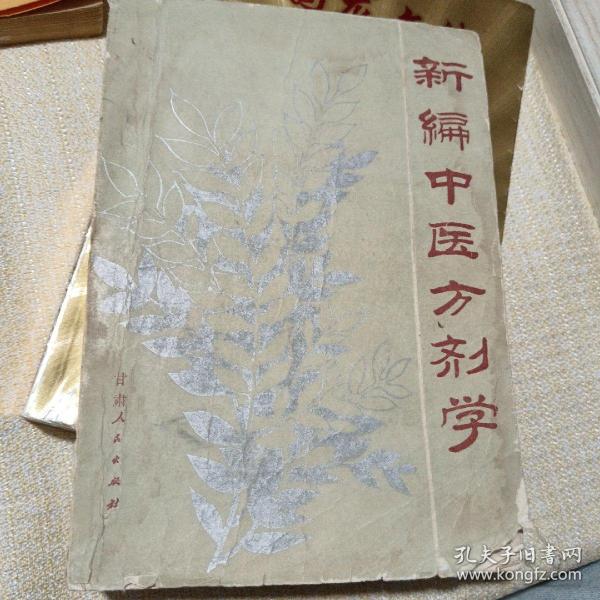 新编中医方剂学
甘肃人民出版社
孔夫子旧書网
www.kongfz.com